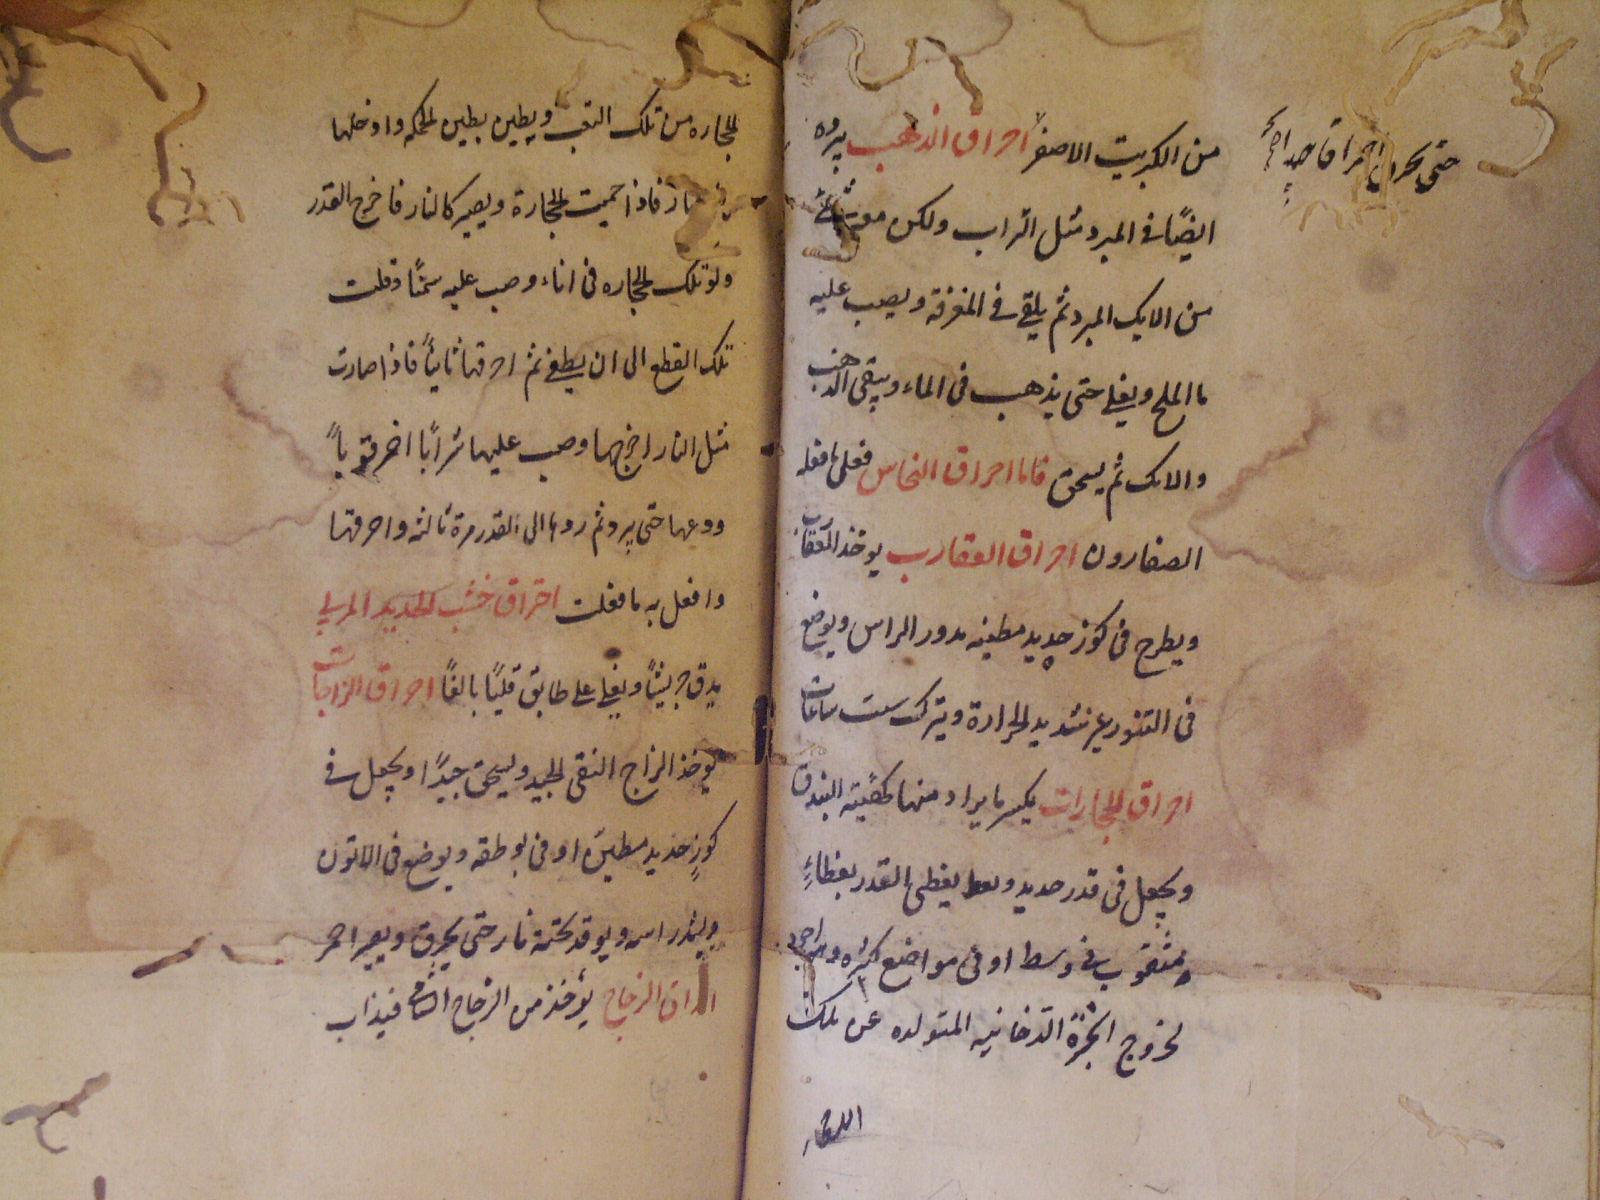 من الكبريت الاصفر احراق الذهب يبرد
ايضًا فى المبرد مثل التراب ولكن معه شئ
من الانك المبرد ثم يلقى فى المغرفة ويصب عليه
ما الملح ويغلى حتى يذهب فى الماء ويبقى الذهب
والانك ثم يسحق فاما احراق النحاس فعلى ما فعله
الصفارون احراق العقارب يوخذ العقارب
ويطرح فى كوز جديد مطينه مدور الراس ويوضع
فى التنور غير شديد الحرارة ويترك ست ساعات
احراق الحجارات يكسر ما يراد منها كهيئة البندق
ويجعل فى قدر حديد يغطى القدر بغطاءٍ
مثقوب فى وسط او فى مواضع كثيره
لخروج ابخرة الدخانيه المتولده عن تلك
حتى يحرق احراقا جيدا
الحجاره من تلك الثقب ويطين بطين الحكمه وادخلها
فاذا حميت الحجارة ويصير كالنار فاخرج القدر
تلك الحجاره فى اناء وصب عليه سمنًا وقلت
تلك القطع الى ان يطفئ ثم احرقها ثانيًا فاذا صارت
مثل النار اخرجها وصب عليها شرابًا اخر قويًا
ودعها حتى يبرد ثم ردها الى القدر مرة ثالثه واحرقها
وافعل به ما فعلت احراق خبث الحديد المربى
يدق جريشًا ويقلى على طابق قليًا بالغًا احراق الزاجات
يوخذ الزاج النقى الجيد ويسحق جيدًا ويجعل فى
كوزٍ جديد مطين او فى بوطقه ويوضع فى الاتون
ويشد راسه ويوقد تحته نار حتى يحرق ويصير احمر
احراق الزجاج يؤخذ من الزجاج الشامى فيذاب